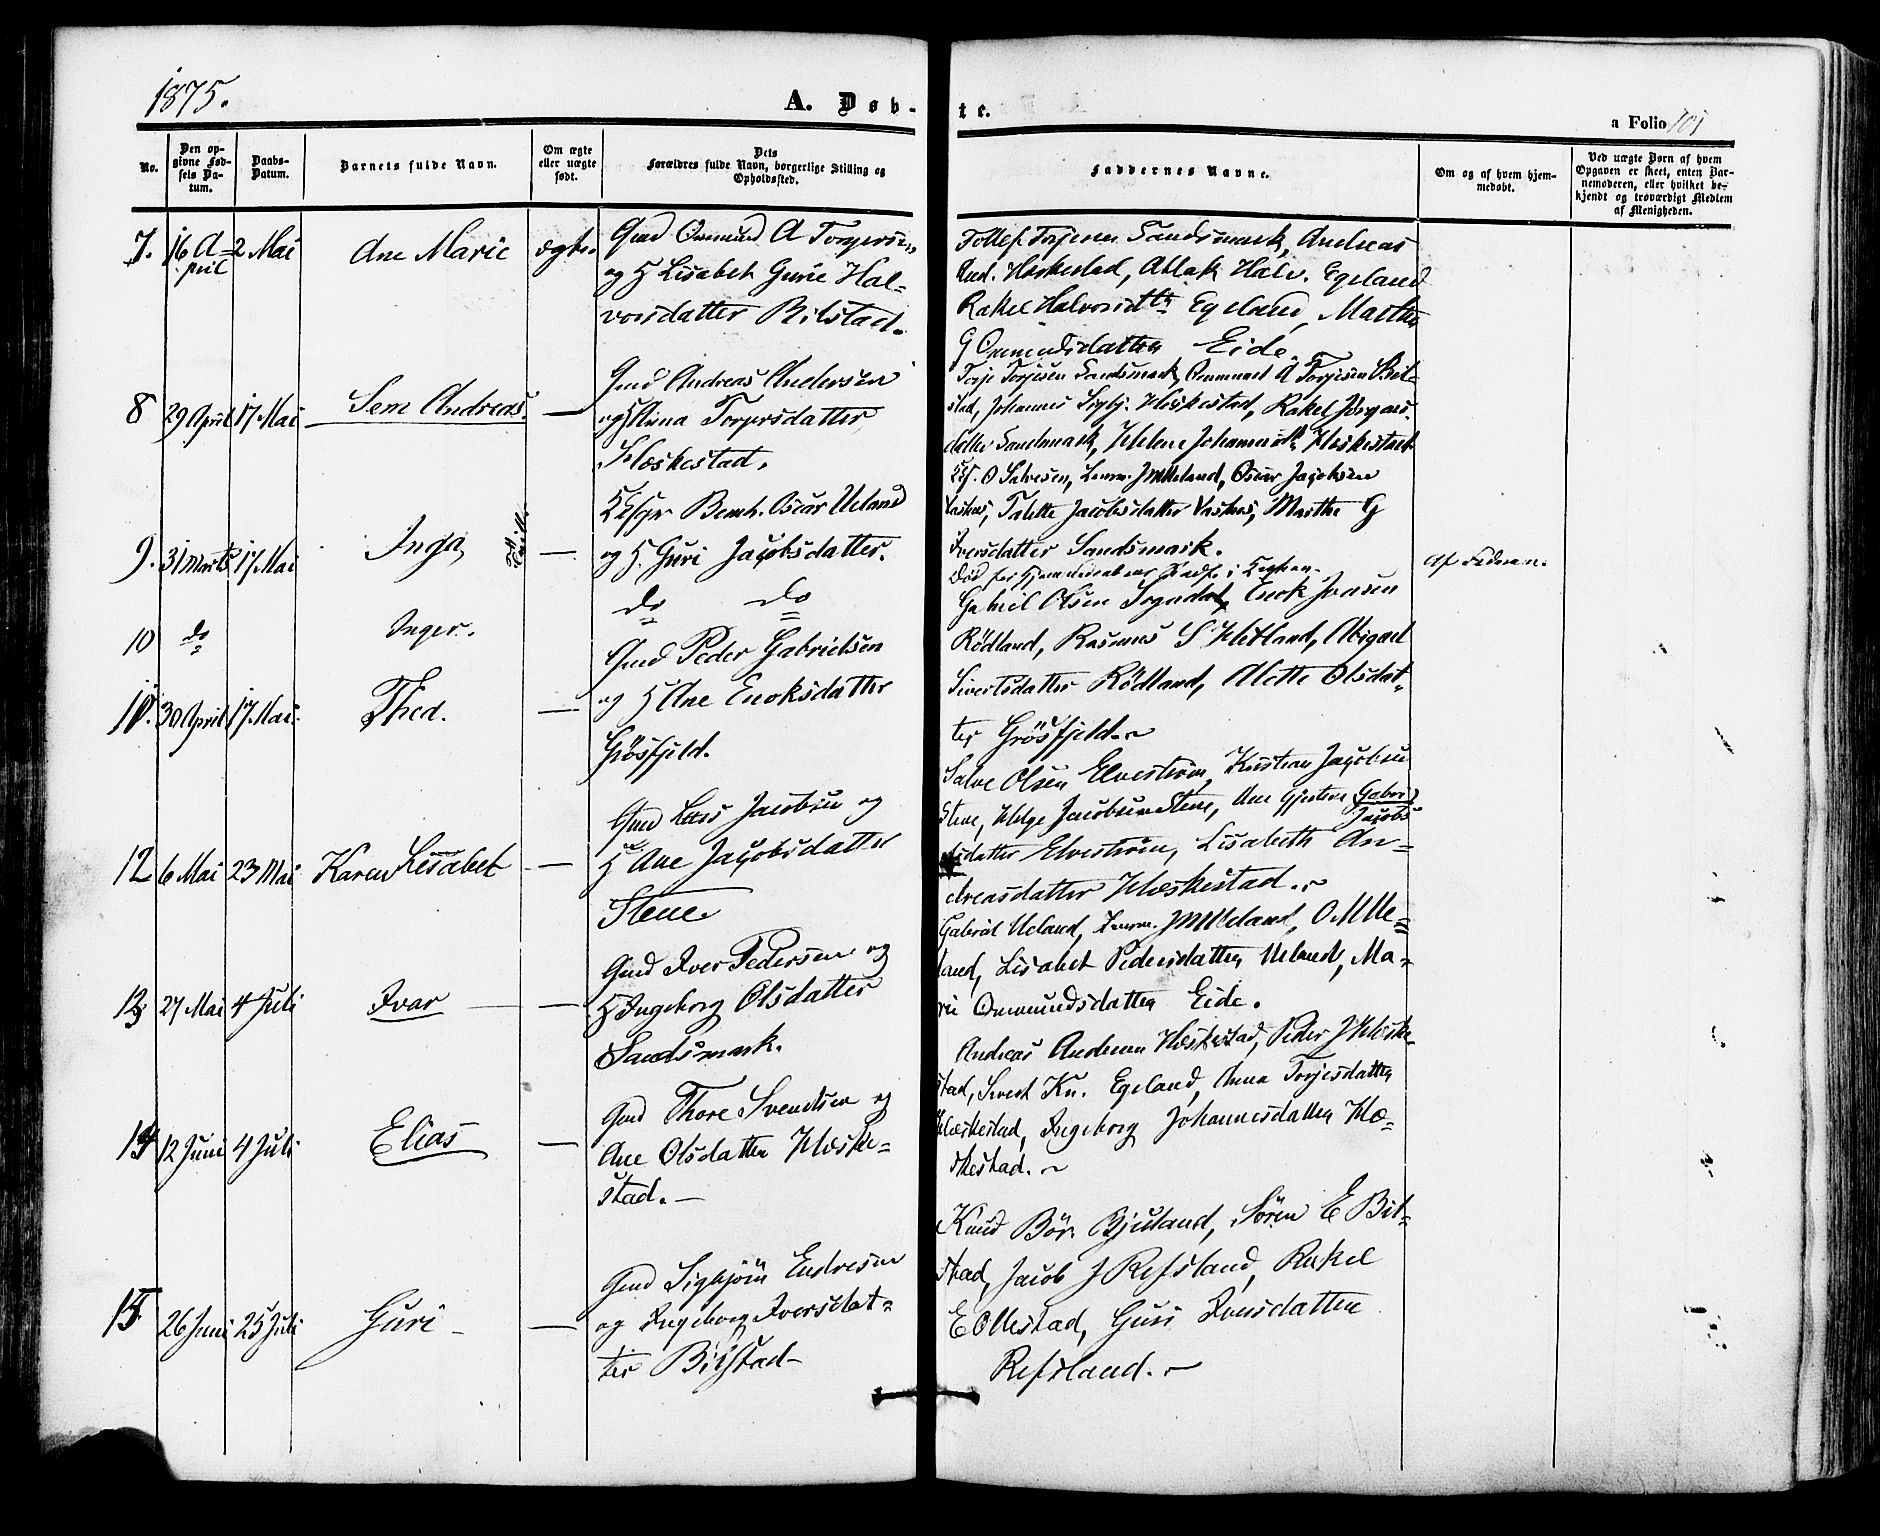 1875.
A. Døb-
te.
a Folio 101
No.
Den op-
givne Fød-
sels Da-
tum.
Daabs-
Datum.
Barnets fulde Navn.
Om ægte
eller uægte
født.
Dets
Forældres fulde Navn, borgerlige Stilling og
Opholdssted.
Faddernes Navne.
Om og af hvem hjem-
medøbt.
Ved uægte Børn af hvem
Opgaven er skeet, enten Bar-
nemoderen, eller hvilket be-
kjendt og troværdigt Medlem
af Menigheden.
7. 16 A= 2 Mai Ane Marie ægte.
pril
Gmd Ommund A Torgersen
og H Lisabet Gurie Hal=
vorsdatter Bilstad.
Tollef Torjesen Sandsmark, Andreas
And. Hæskestad, Atlak Halv. Egeland
Rakel Halvorsdtr Egeland, Marthe
G Ommundsdatter Eide.
8 29 April 17 Mai Sem Andreas. —
Gmd Andreas Andersen
og H Anna Torgersdatter
Hæskestad.
Torje Torjesen Sandsmark, Ommund A Torjesen Bil-
stad, Johannes Sigbj. Hæskestad, Rakel
datter Sandsmark, Helene Johannesdtr Hæskestad
9. 31 Marts 17 Mai Inga —
Bernh. Oscar Ueland
og H. Guri Jacobsdatter.
O Salvesen, Ueland, Oscar Jacobsen
Talette Jacobsdatter Marthe G
Iversdatter Sandsmark.
Af Faderen.
10 do Inger.
do do
Død før
11. 30 April 17 Mai. Thed. —
Gmd Peder Gabrielsen
og H Ane Enoksdatter
Grøsfjeld.
Gabriel Olsen Sogndal, Enok Jonsen
Rødland, Rasmus S Hetland, Abigael
Sivertsdatter Rødland, Alette Olsdat-
ter Grøsfjeld.
12 6 Mai 23 Mai Karen Lisabet —
Gmd Lars Jacobsen og
H Ane Jacobsdatter
Stene
Salve Olsen Elvestrøm, Kristian Jacobsen
Stene, Helge Jacobsen Stene, Ane Gjertine Gabri
Jacobs
datter Elvestrøm, Lisabeth An=
dreasdatter Hæskestad.
13 27 Mai 4 Juli Ivar —
Gmd Iver Pedersen og
H Ingeborg Olsdatter
Sandsmark.
Gabriel Ueland, Ueland, O M Ue=
land, Lisabet Pedersdatter Ueland, Ma-
ri Ommundsdatter Eide.
14 12 Juni 4 Juli Elias —
Gmd Thore Svendsen og
Ane Olsdatter Hæske=
stad. —
Andreas Andersen Hæskestad, Peder J Hæske-
stad, Sivert Kn. Egeland, Anna Torjesdatter
Hæskestad, Ingeborg Johannesdatter Hæ-
skestad.
15 26 Juni 25 Juli Guri —
Gmd Sigbjørn Endresen
og Ingeborg Iversdat=
ter Bilstad —
Knud Bør. Bjuland, Søren E Bil-
stad, Jacob J Refsland, Rakel
E Ollestad, Guri Iversdatter
Refsland.